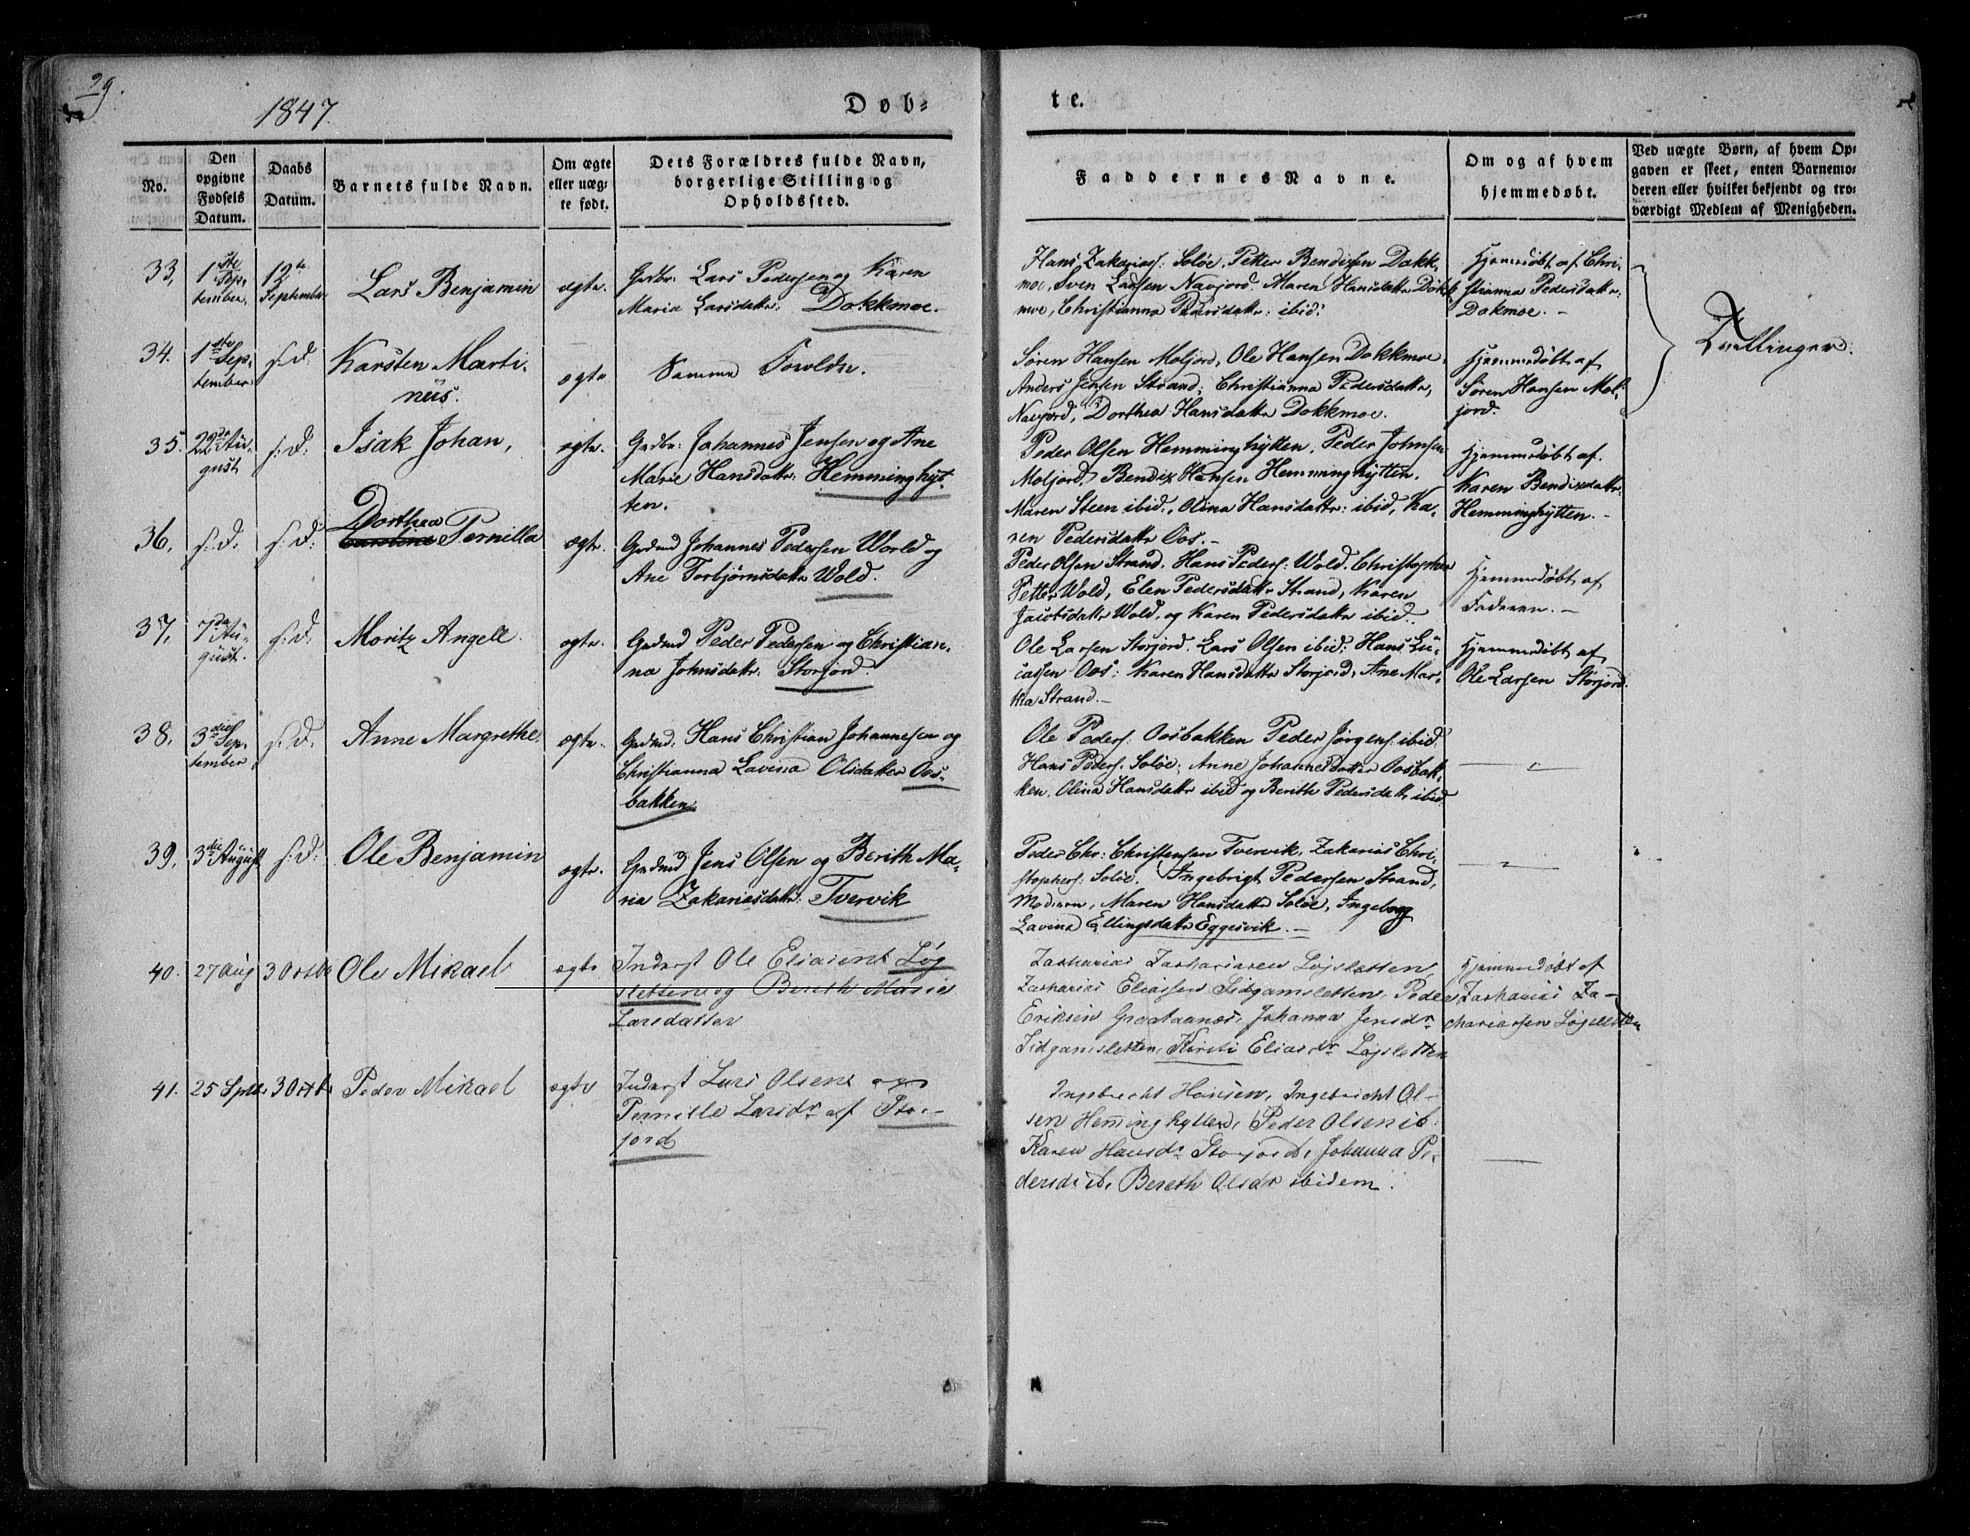 29.
1847.
Døb-
te.
No.
Den opgivne Fødsels Datum.
Daabs Datum.
Barnets fulde Navn.
Om ægte eller uægte født.
Dets Forældres fulde Navn, borgerlige Stilling og Opholdssted.
Faddernes Navne.
Om og af hvem hjemmedøbt.
Ved uægte Børn, af hvem Opgaven er skeet, enten Barnemoderen eller hvilket bekjendt og troværdigt Medlem af Menigheden.
33, 1ste September. 12te September Lars Benjamin ægte. Gaardbr. Lars Pedersen og Karen
Maria Larsdattr: Dokkmoe.
Hans Zakarias. Soløe, Petter Bendixen Dokk-
moe, Sven Larsen Navjord. Maren Hansdattr Dokk-
moe, Christianna Pedersdattr: ibid:
Hjemmedøbt af Chri-
stianna Pedersdattr:
Dokmoe. -
34. 1ste September s. D. Karsten Marti-
nus. ægte Samme Forældre.
Søren Hansen Moljord, Ole Hansen Dokkmoe.
Anders Jensen Strand; Christianna Pedersdattr,
Navjord, Dorthea Hansdattr Dokkmoe.
Hjemmedøbt af
Søren Hansen Mol-
jord.
Tvillinger.
35. 22de August s. D. Isak Johan, ægte. Gaardbr: Johannes Jensen og Ane
Marie Hansdattr: Hemminghyt-
ten.
Peder Olsen Hemminghytten, Peder Johnsen
Moljord, Bendix Hansen Hemminghytten.
Maren Steen ibid:, Olina Hansdattr: ibid, Ka-
ren Pedersdattr Oos.-
Hjemmedøbt af.
Karen Bendixdattr.
Hemminghytten. -
36, s. D. s. D: Dorthea
Caroline Pernilla ægte. Johannes Pedersen World og
Ane Torbjørnsdattr Wold.
Peder Olsen Strand. Hans Peders. Wold. Christopher
Petter Wold, Elen Pedersdattr Strand, Karen
Jacobsdattr Wold, og Karen Pedersdattr ibid.
Hjemmedøbt af
Faderen. -
37, 7de August. s. D. Moritz Angell. ægte. Peder Pedersen og Christian-
na Johnsdattr: Storjord.
Ole Larsen Storjord. Lars Olsen ibid: Hans Lu-
cassen Oos: Karen Hansdattr Storjord, Ane Mar-
tha Strand.-
Hjemmedøbt af
Ole Larsen Storjord.
38, 3die September s. D. Anne Margrethe ægte. Hans Christian Johannesen og
Christianna Lavina Olsdatter Oos-
bakken.
Ole Peders: Oosbakken Peder Jørgens: ibid
Hans Peders. Soløe; Anne Johannesdatter Oosbak-
ken, Olina Hansdattr ibid og Berith Pedersdattr ibid
39, 3die August s. D: Ole Benjamin ægte. Jens Olsen og Berith Ma-
ria Zakariasdattr: Tvervik
Peder Chr: Christensen Tvervik. Zakarias Chri-
stophers: Soløe. Ingebrigt Pedersen Strand,
Moderen, Maren Hansdattr Soløe, Ingeborg
Lavina Ellingsdattr Eggesvik. -
40. 27 Aug 3 Octbr Ole Mikael ægte Inderst Ole Eliasen Løg
sletten og Bereth Marie
Larsdatter
Zacharias Zachariasen Løgsletten,
Zacharias Eliassen Sidgamsletten. Peder
Eriksen Graatanæs, Johanna Jensdr
Sidgamsletten, Kirsti Eliasdr Løgsletten
Hjemmedøbt af
Zacharias Za-
chariassen Løgsletten
41. 25 Sptbr 3 Octbr Peder Mikael ægte Inderst Lars Olsen og
Pernille Larsdr af Stor-
jord
Ingebrecht Hansen, Ingebricht Ol-
sen Heminghytten, Peder Olsen ib.
Karen Hansdr Storjord, Johanna Pe-
dersd. ib, Bereth Olsdr ibidem.